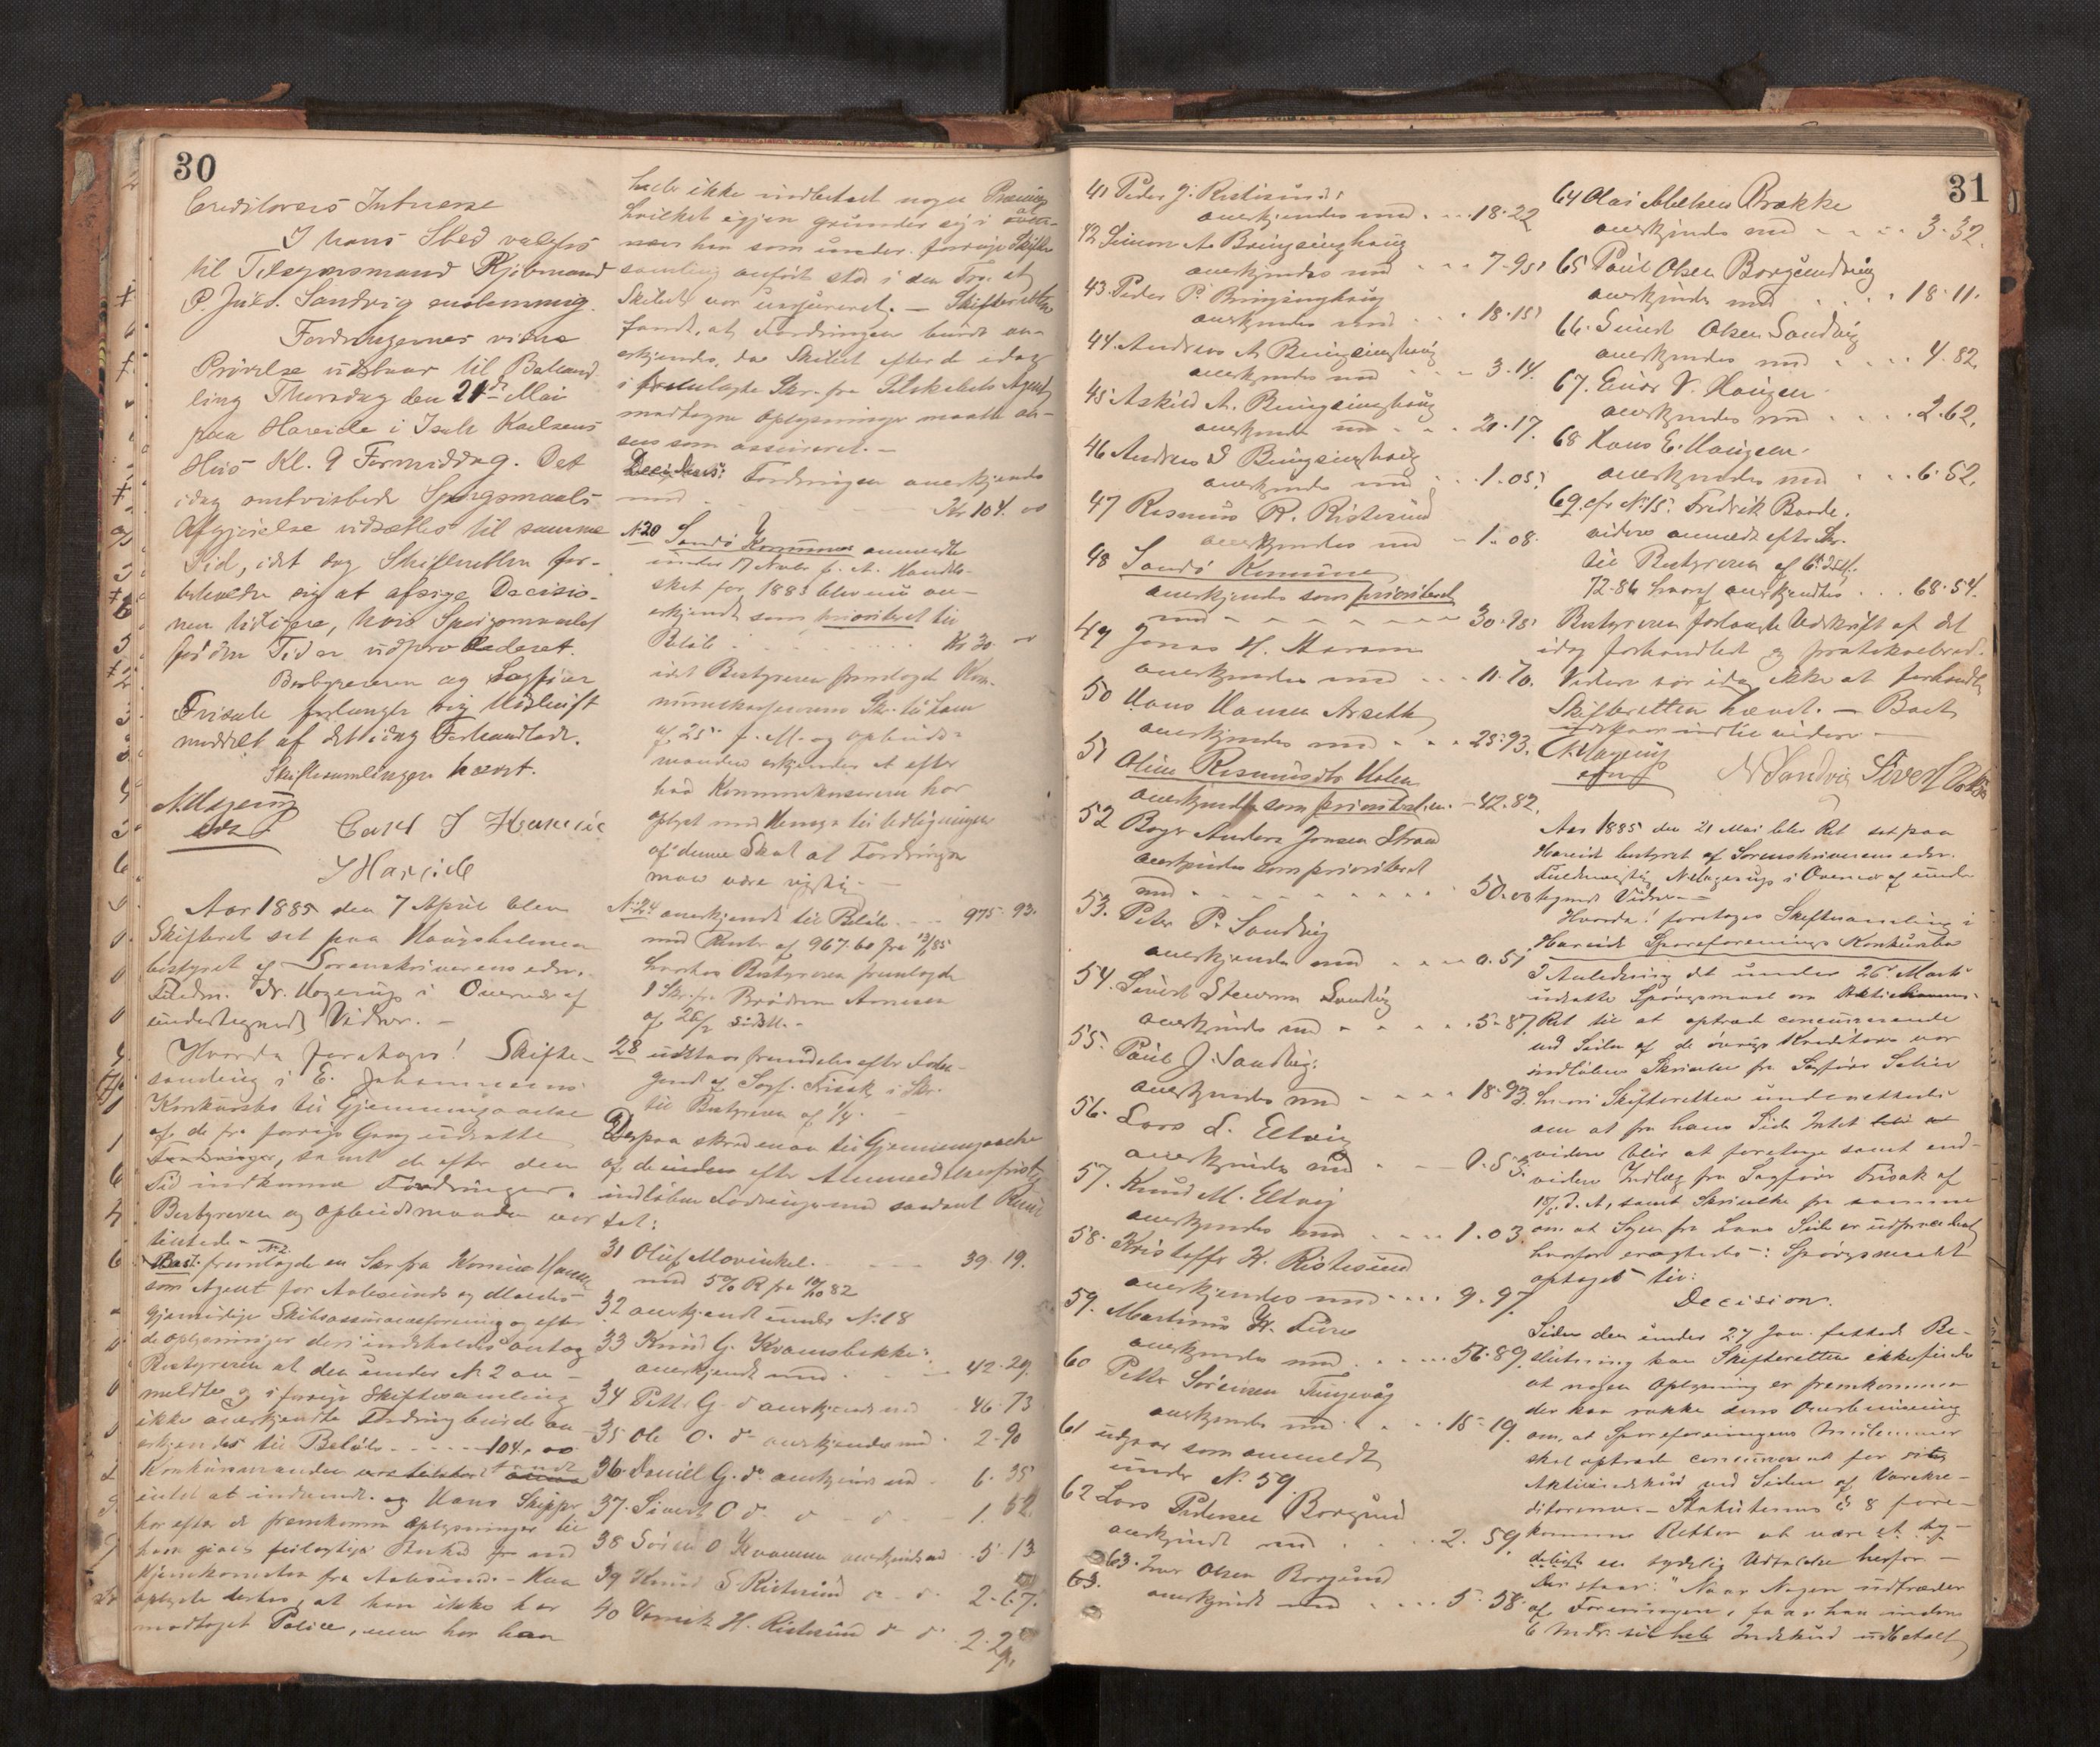 30
Creditorers Interesse
I hans Sted valgtes
til Tilsynsmand Kjøbmand
P. Jul. Sandvig enstemmig.
Fordringernes videre
Prøvelse udstaar til Behand
ling Thorsdag den 21de Mai
paa Hareide i Isak Karlsens
Hus Kl. 9 Formiddag. Det
idag omtvistede Spørgsmaals
Afgjørelse udsættes til samme
Tid, idet dog Skifteretten for-
beholder sig at afsige Decisio-
nen tidligere, hvis Spørgsmaalet
før den Tid er udprocederet.
Bestyreren og Sagfører
Frisak forlangte sig Udskrift
meddelt af det idag Forhandlede.
Skiftesamlingen hævet.
Carl J Hareide
J Hareide
Aar 1885 den 7 April blev
Skifteret sat paa Haugsholmen
bestyret af Sorenskriverens edsv.
Fuldm. N. Hagerup i Overvær af
undertegnede Vidner. -
Hvorda foretoges! Skifte-
samling i E. Johannesens
Konkursbo til Gjennemgaaelse
af de fra forrige Gang udsatte
Fordringer, samt de efter den
Tid indkomne Fordringer.
Bestyreren og Opbudsmanden var
tilstede.
No 2.
Best. fremlagde en Skr fra
som Agent for Aalesunds og Moldes
gjensidige Skibsassuranceforening og efter
de Oplysninger deri indeholdes antog
Bestyreren at den under No 2 an-
meldte og i forrige Skiftesamling
ikke anerkjendte Fordring burde an
erkjendes til Beløb - - - - 104. 00
Konkursmanden fandt
intet at indvende og Hans Skipper
har efter de fremkomne Oplysninger til
ham givet feilagtige Besked ved
Hjemkomsten fra Aalesund. - Han
oplyste derhos, at han ikke har
modtaget Police, men har han
heller ikke indbetalt nogen Præmie,
hvilket igjen grunder sig i at
man han som under forrige Skifte
samling anført stod i den Tro at
Skibet var uassureret. - Skifteretten
fandt, at Fordringen burde an-
erkjendes, da Skibet efter de idag
i fremlagte Skr. fra Selskabets Agent
modtagne Oplysninger maatte an-
sees som assureret. -
Decideres: Fordringen anerkjendes
med - - Kr 104. 00
No 20 Sandø Kommune anmeldte
under 17 Novbr f. A. Handels-
skat for 1883 blev nu an-
erkjendt som prioriteret til
Beløb . . . . . Kr 30. 00
idet Bestyreren fremlagde Kom-
munekassererens Skr. til ham
af 25 f. M. og Opbuds-
manden erkjender at efter
hvad Kommunekassereren har
oplyst med Hensyn til Udligningen
af denne Skat at Fordringen
maa være rigtig. -
No 24 anerkjendt til Beløb - - - 975. 93.
med Rente af 967.60 fra 13/85
hvorhos Bestyreren fremlagde
1 Skr. fra Brødrene Arnesen
af 26/2 sidstl. -
28 udstaar fremdeles efter Foden-
gende af Sagf. Frisak i Skr.
til Bestyreren af 1/4. -
Derpaa skred man til Gjennemgaaelse
af de efter Anmeldelsesfristen
indløbne Fordringer med saadant Resul
tat:
31 Oluf Movinkel. - - - 39. 19.
med 5% R fra 10/10 82
32 anerkjendt under No 18
33 Knud G. Kvamsbakke:
anerkjendt med - - - 42. 29.
34 Pett. G. do anerkjendt med - 46. 73
35 Ole O. do anerkjendes med - 2. 90
36. Daniel G. do anerkjendes med - 6. 35
37. Sivert O do - do - do - 1. 62.
38 Søren O Kvamme anerkjendes med - 5. 13
39 Knud S Ristesund do - do - 2. 67.
40 H. Ristesund do do - 2. 29.
31
41 Peder J. Ristesund:
anerkjendes med . . . 18. 22
42 Simon A. Bringsinghaug
anerkjendes med . . . 7. 95
43. Peder P. Bringsinghaug
anerkjendes med . . . 18. 15
44. Andreas A Bringsinghaug
anerkjendes med - - - 3. 14.
45. Askild A. Bringsinghaug
anerkjendes med . . . 21. 17.
46 Andreas S Bringsinghaug
anerkjendes med . . . 1. 05
47 Rasmus R. Ristesund
anerkjendes med - 1. 08.
48 Sandø Komune
anerkjendes som prioriteret
med - - - - - - 30. 75
49 Jonas H. Maram
anerkjendes med - - - 11. 70.
50 Hans Hansen Arseth
anerkjendes med - - - 25. 93.
51 Oline Rasmusdtr Holen
anerkjendt som prioriteret m. - 42. 82.
52 Anders Jonsen Strand
anerkjendes som prioriteret
med - - - - - - 50. 00
53. Peter P. Sandvig
anerkjendes med - - - 0. 51
54. Sivert Steversen Sandvig
anerkjendes med - - - 5. 87.
55. Paul J. Sandvig:
anerkjendes med - - - 18. 93.
56. Lars L. Eltvig
anerkjendes med - - - 0. 53
57. Knud M. Eltvig
anerkjendes med - - - 1. 03.
58. Kristoffer K. Ristesund
anerkjendes med - - - 9. 97.
59. Martinus K.
anerkjendes med . . . 56. 89.
60 Petter Sørensen
anerkjendes med . . . 15. 19
61 udgaar som anmeldt
under No 59.
62 Lars Pedersen Borgund
anerkjendt med . . . 2. 59.
63. Iver Olsen Borgund
anerkjendt med . . . 5. 58.
64 Olai Abelsen Brække
anerkjendes med - - - 3. 32.
65 Paul Olsen Borgundvåg
anerkjendes med - - - 18. 11.
66. Sivert Olsen Sandvig
anerkjendes med . . . 4. 82.
67. Einar V. Haugen
anerkjendes med . . . 2. 62.
68 Hans E. Haugen.
anerkjendes med . . . 6. 52.
69. cfr No 15. Fredrik Baade.
videre anmeldt efter Skr.
til Bestyreren af 6
72.86 hvoraf anerkjendtes . . . 68. 54.
Bestyreren forlangte Udskrift af det
idag forhandlede og protokollerede.
Videre var idag ikke at forhandle
Skifteretten hævet. - Boet
udstaar indtil videre -
N Hagerup
N Sandvig Sivert
Aar 1885 den 21 Mai blev Ret sat paa
Hareide bestyret af Sorenskriverens edsv.
Fuldmægtig N Hagerup i Overvær af under
tegnede Vidner -
Hvorda! foretoges Skiftesamling i
Hareids Spareforenings Konkursbo
I Anledning det under 26. Marts
udsatte Spørgsmaal om
Ret til at optræde concurrerende
ved Siden af de øvrige Kreditorer var
indløben Skrivelse fra Sagfører
hvori Skifteretten underrettedes
om at fra hans Side Intet
videre blir at foretage samt end-
videre Indlæg fra Sagfører Frisak af
15/5 d. A, samt Skrivelse fra samme
om at Sagen fra hans Side er udprocederet
hvorfor eragtedes: Spørgsmaalet
optaget til:
Decision.
Siden den under 27 Jan. fattede Be-
slutning kan Skifteretten ikke finde
at nogen Oplysning er fremkommen
der kan rokke dens Overbevisning
om, at Spareforeningens Medlemmer
skal optræde concurrerende for sit
Aktieindskud ved Siden af Varekre-
ditorerne. - Statuternes § 8 fore-
kommer Retten at være et
en tydelig Udtalelse herfor. -
Der staar: "Naar Nogen udtræder
af Foreningen, faar han inden
6 Mdr. sit hele Indskud udbetalt